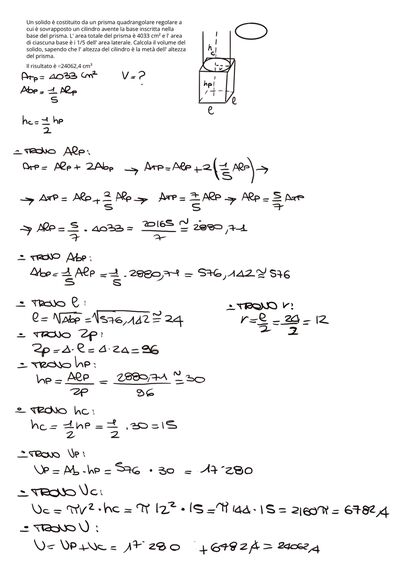 Un solido è costituito da un prisma quadrangolare regolare a
cui è sovrapposto un cilindro avente la base inscritta nella
base del prisma. L' area totale del prisma è 4033 cm² e l' area
di ciascuna base è i 1/5 dell' area laterale. Calcola il volume del
solido, sapendo che l' altezza del cilindro è la metà dell' altezza
del prisma.
Il risultato è ≈24062,4 cm³
ATP = 4033 cm² V = ?
AbP = 1/5 AlP
hc = 1/2 hP
hc
r
hP
l
l
- TROVO AlP:
ATP = AlP + 2AbP → ATP = AlP + 2(1/5 AlP) →
→ ATP = AlP + 2/5 AlP → ATP = 7/5 AlP → AlP = 5/7 ATP
→ AlP = 5/7 · 4033 = 20165/7 ≅ 2880,71
- TROVO AbP:
AbP = 1/5 AlP = 1/5 · 2880,71 = 576,142 ≅ 576
- TROVO l: - TROVO r:
l = √AbP = √576,142 ≅ 24 r = l/2 = 24/2 = 12
- TROVO 2P:
2P = 4·l = 4·24 = 96
- TROVO hP:
hP = AlP/2P = 2880,71/96 ≅ 30
- TROVO hc:
hc = 1/2 hP = 1/2 · 30 = 15
- TROVO VP:
VP = Ab · hP = 576 · 30 = 17·280
- TROVO Vc:
Vc = πr² · hc = π 12² · 15 = π 144 · 15 = 2160π = 6782,4
- TROVO V:
V = VP + Vc = 17·280 + 6782,4 = 24062,4